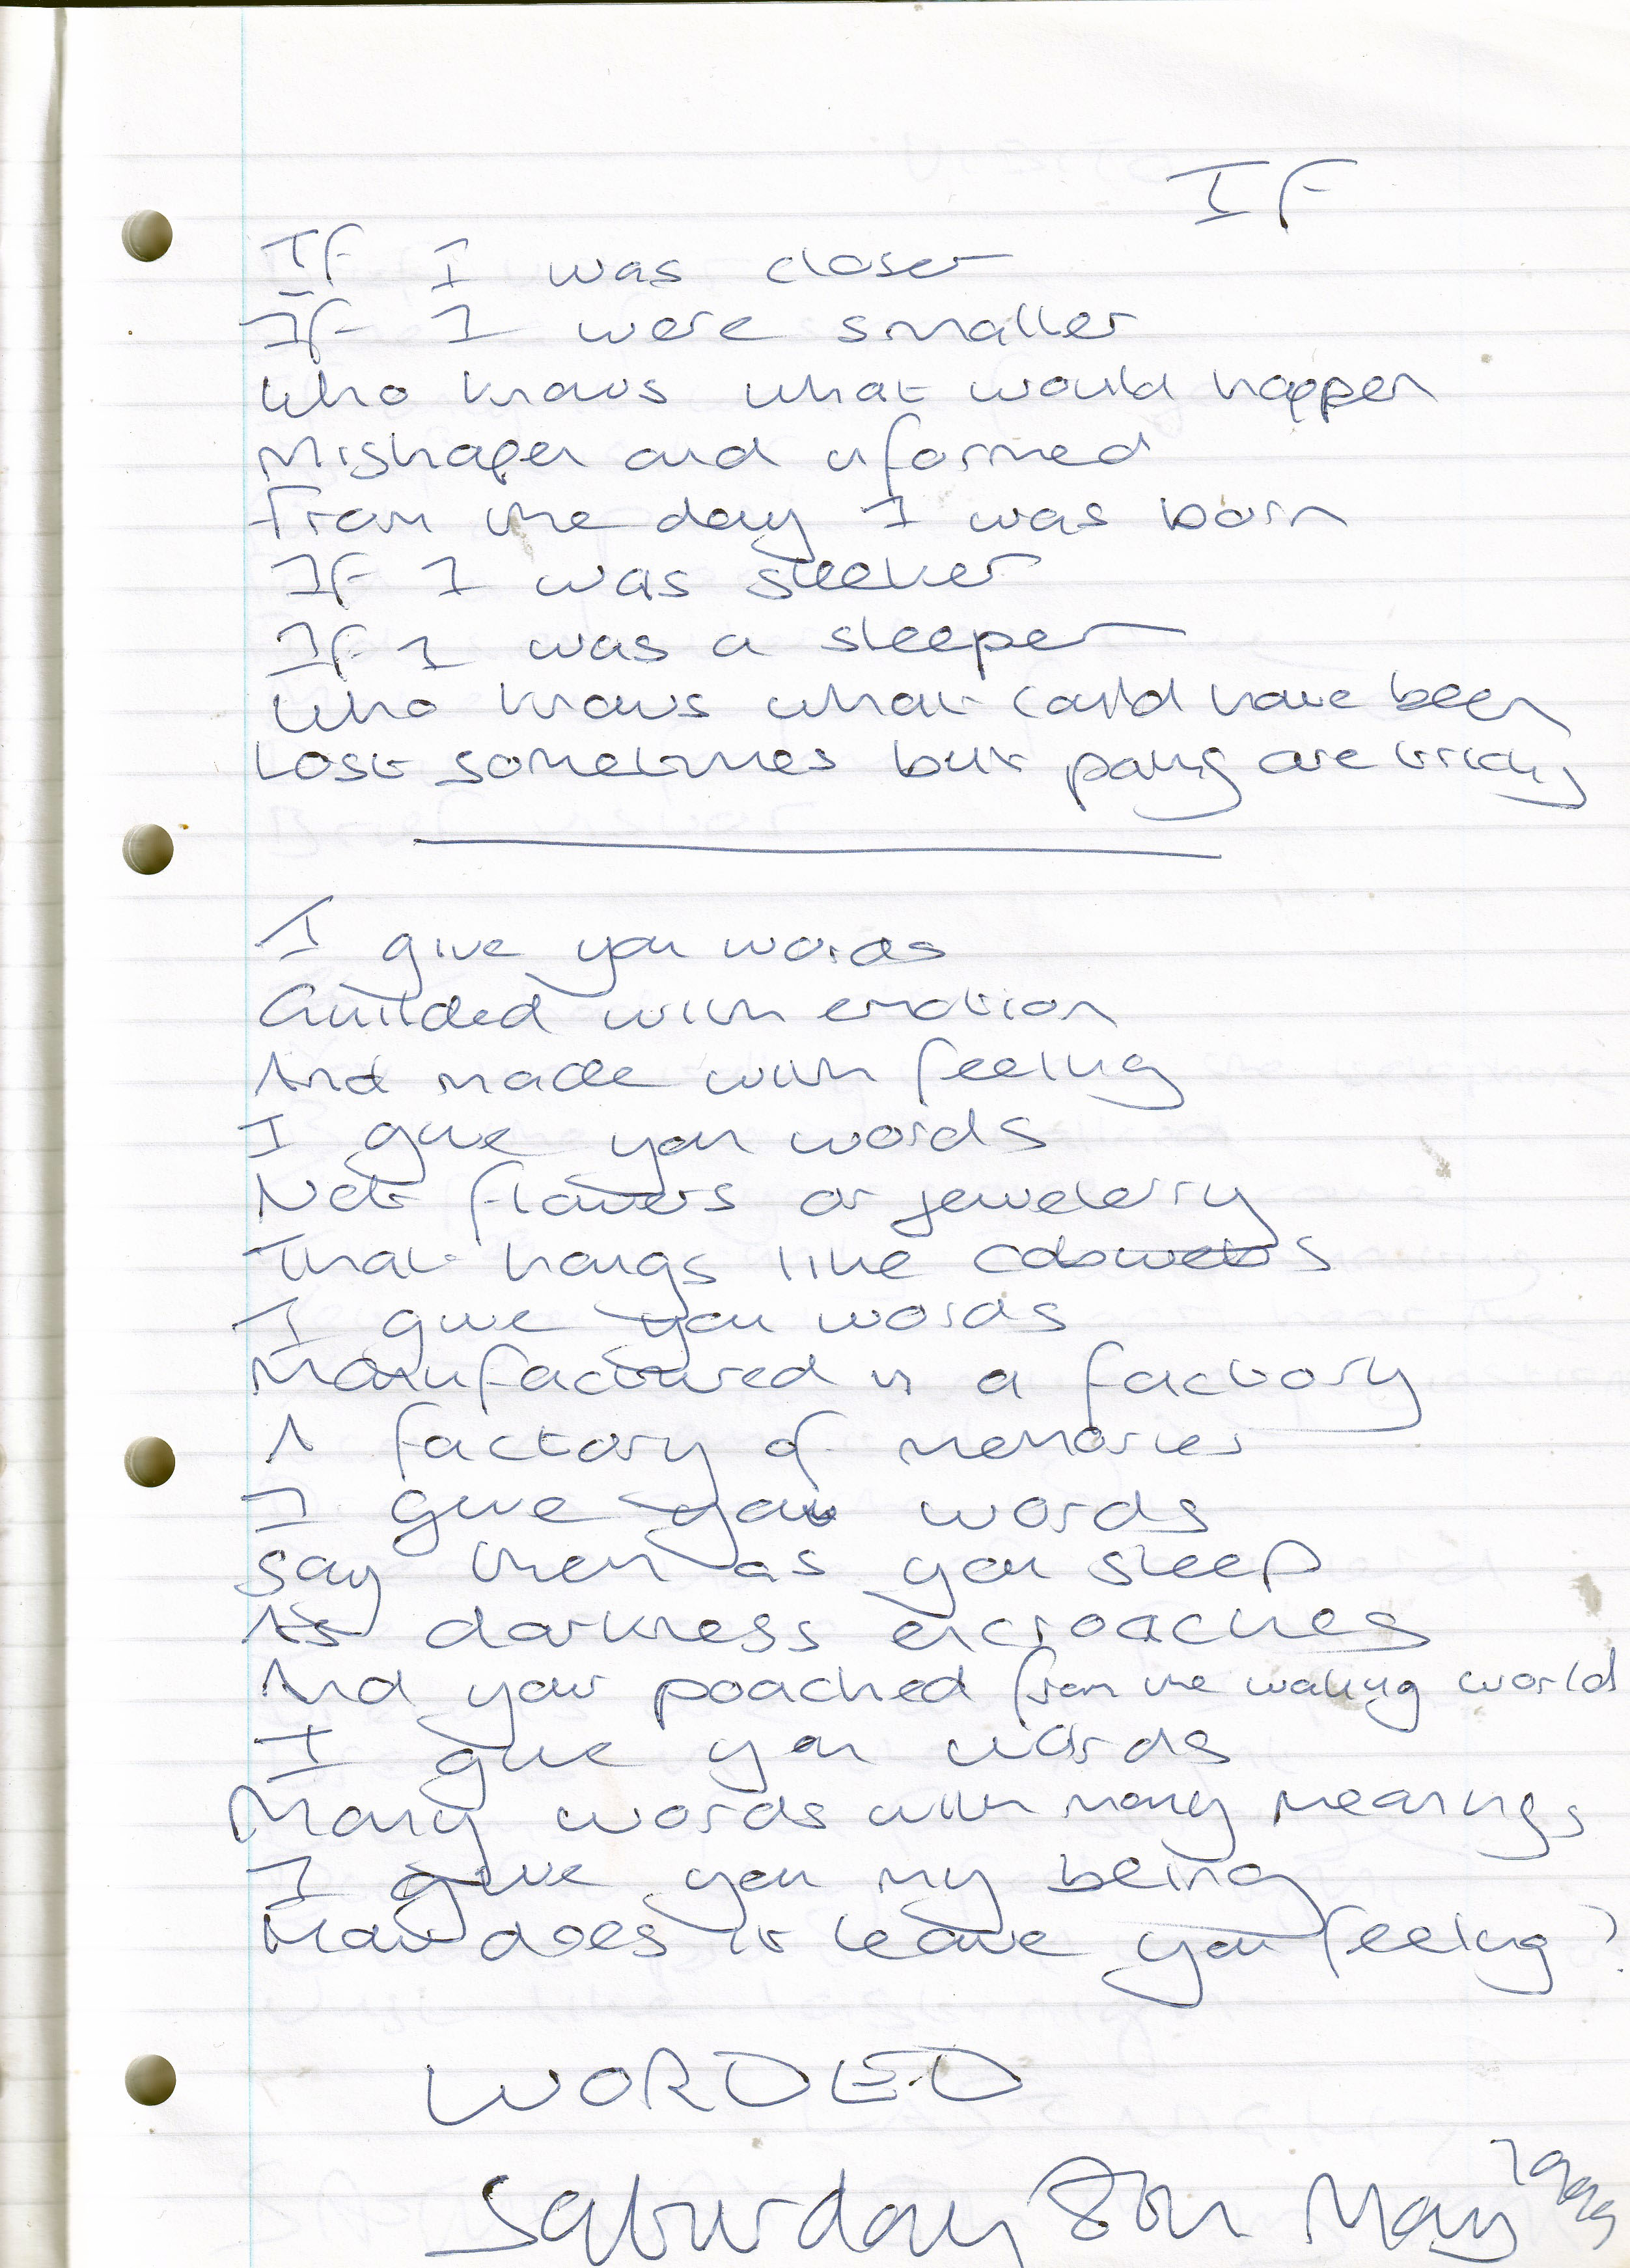 IF
If I was closer
If I were smaller
Who knows what would happen
Mishapen and unformed
From the day I was born
If I was sleeker
If I was a sleeper
Who knows what could have been
Lost sometimes but are
I give you words
Guilded with emotion
And made with feeling
I give you words
Not flowers or jewelerry
That hangs like cobwebs
I give you words
Manufactured in a factory
A factory of memories
I give you words
Say them as you sleep
As darkness encroaches
And your poached from the waking world
I give you words
Many words with many meanings
I give you my being
How does it leave you feeling?
WORDED
Saturday 8th May 1999